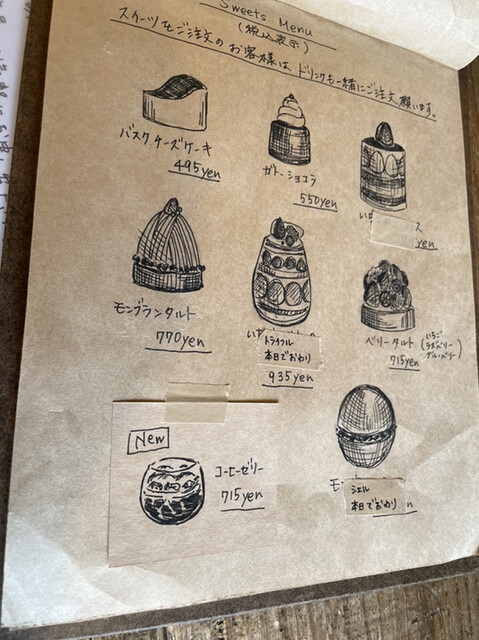 Sweets Menu
(税込表示)
スイーツをご注文のお客様は、ドリンクも一緒にご注文願います。
バスクチーズケーキ
495yen
ガトーショコラ
550yen
ス
yen
モンブランタルト
770yen
トライフル
本日でおわり
935yen
ベリータルト
(いちご
ラズベリー
ブルーベリー)
715yen
New
コーヒーゼリー
715yen
モン
シェル
本日でおわり
n